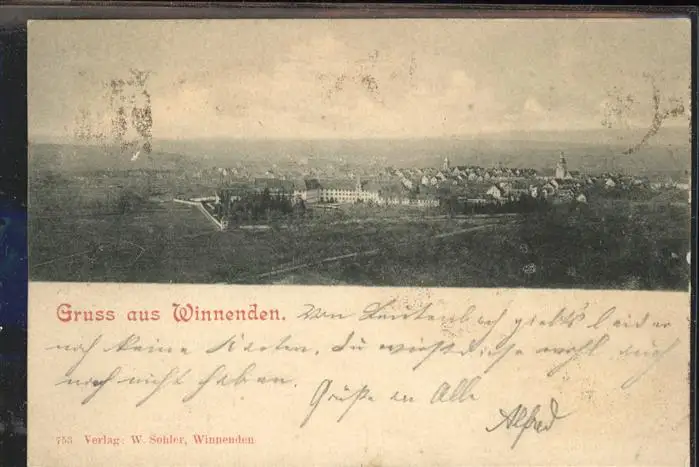 Gruss aus Winnenden. Von Leutenbach giebt's leider
noch keine Karten. Du wirst diese wohl auch
noch nicht haben.
Grüße an Alle
Alfred
753 Verlag: W. Sohler, Winnenden